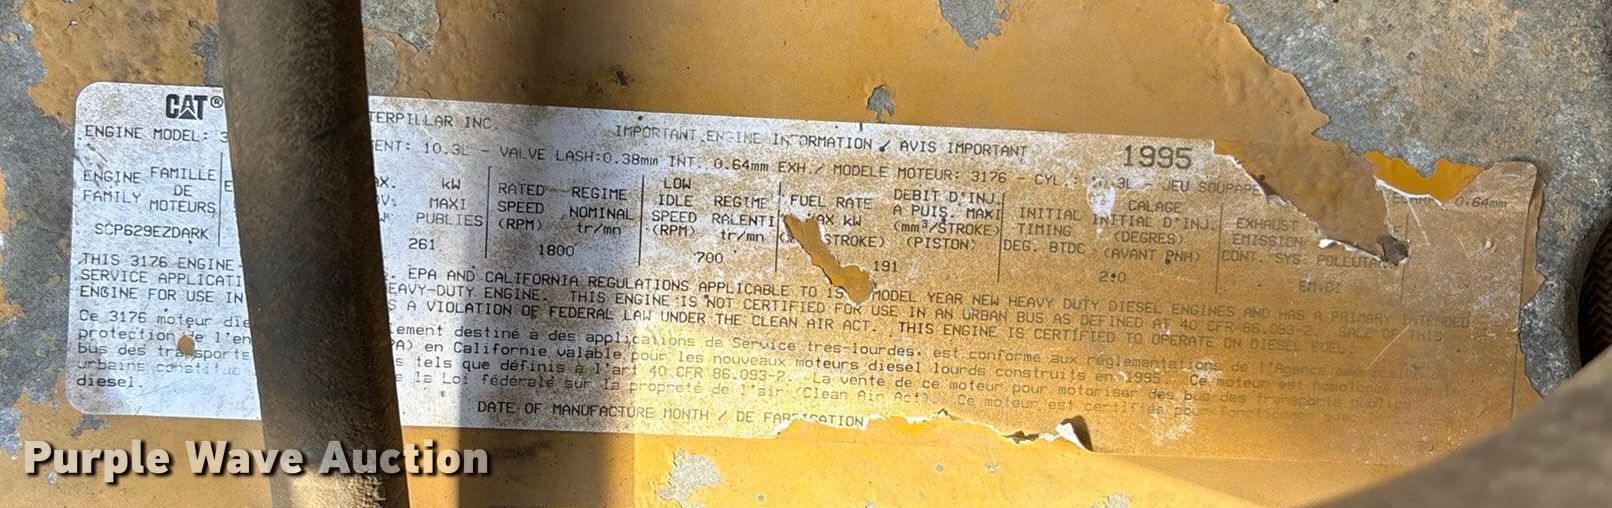 CAT®
TERPILLAR INC. IMPORTANT ENGINE INFORMATION / AVIS IMPORTANT 1995
ENGINE MODEL: 3 ENT: 10.3L - VALVE LASH:0.38mm INT. 0.64mm EXH./ MODELE MOTEUR: 3176 - CYL.: 10.3L - JEU SOUPAPE 0.64mm
ENGINE FAMILLE
DE
FAMILY MOTEURS
SCP629EZDARK
AX. kW
MAXI
PUBLIES
261
RATED REGIME
SPEED NOMINAL
(RPM) tr/mn
1800
LOW
IDLE REGIME
SPEED RALENTI
(RPM) tr/mn
700
FUEL RATE DEBIT D'INJ.
MAX kW A PUIS. MAXI
STROKE) (mm³/STROKE)
(PISTON)
191
INITIAL CALAGE
TIMING INITIAL D'INJ.
(DEGRES)
DEG. BTDC (AVANT PNH)
2.0
EXHAUST
EMISSION
CONT. SYS. POLLUTAN
EM,DI
THIS 3176 ENGINE . EPA AND CALIFORNIA REGULATIONS APPLICABLE TO 19 MODEL YEAR NEW HEAVY DUTY DIESEL ENGINES AND HAS A PRIMARY INTENDED
SERVICE APPLICATI EAVY-DUTY ENGINE. THIS ENGINE IS NOT CERTIFIED FOR USE IN AN URBAN BUS AS DEFINED AT 40 CFR 86.093 SALE OF THIS
ENGINE FOR USE IN S A VIOLATION OF FEDERAL LAW UNDER THE CLEAN AIR ACT. THIS ENGINE IS CERTIFIED TO OPERATE ON DIESEL FUEL.
Ce 3176 moteur die lement destiné à des applications de Service très-lourdes, est conforme aux réglementations de l'Agence
protection de l'en PA) en Californie valable pour les nouveaux moteurs diesel lourds construits en 1995. Ce moteur est
bus des transports s tels que définis à l'art 40 CFR 86.093-2. La vente de ce moteur pour motoriser des bus des transports
urbains constitue e la Loi fédérale sur la propreté de l'air (Clean Air Act). Ce moteur est certifiée pour
diesel.
DATE OF MANUFACTURE MONTH / DE FABRICATION
Purple Wave Auction